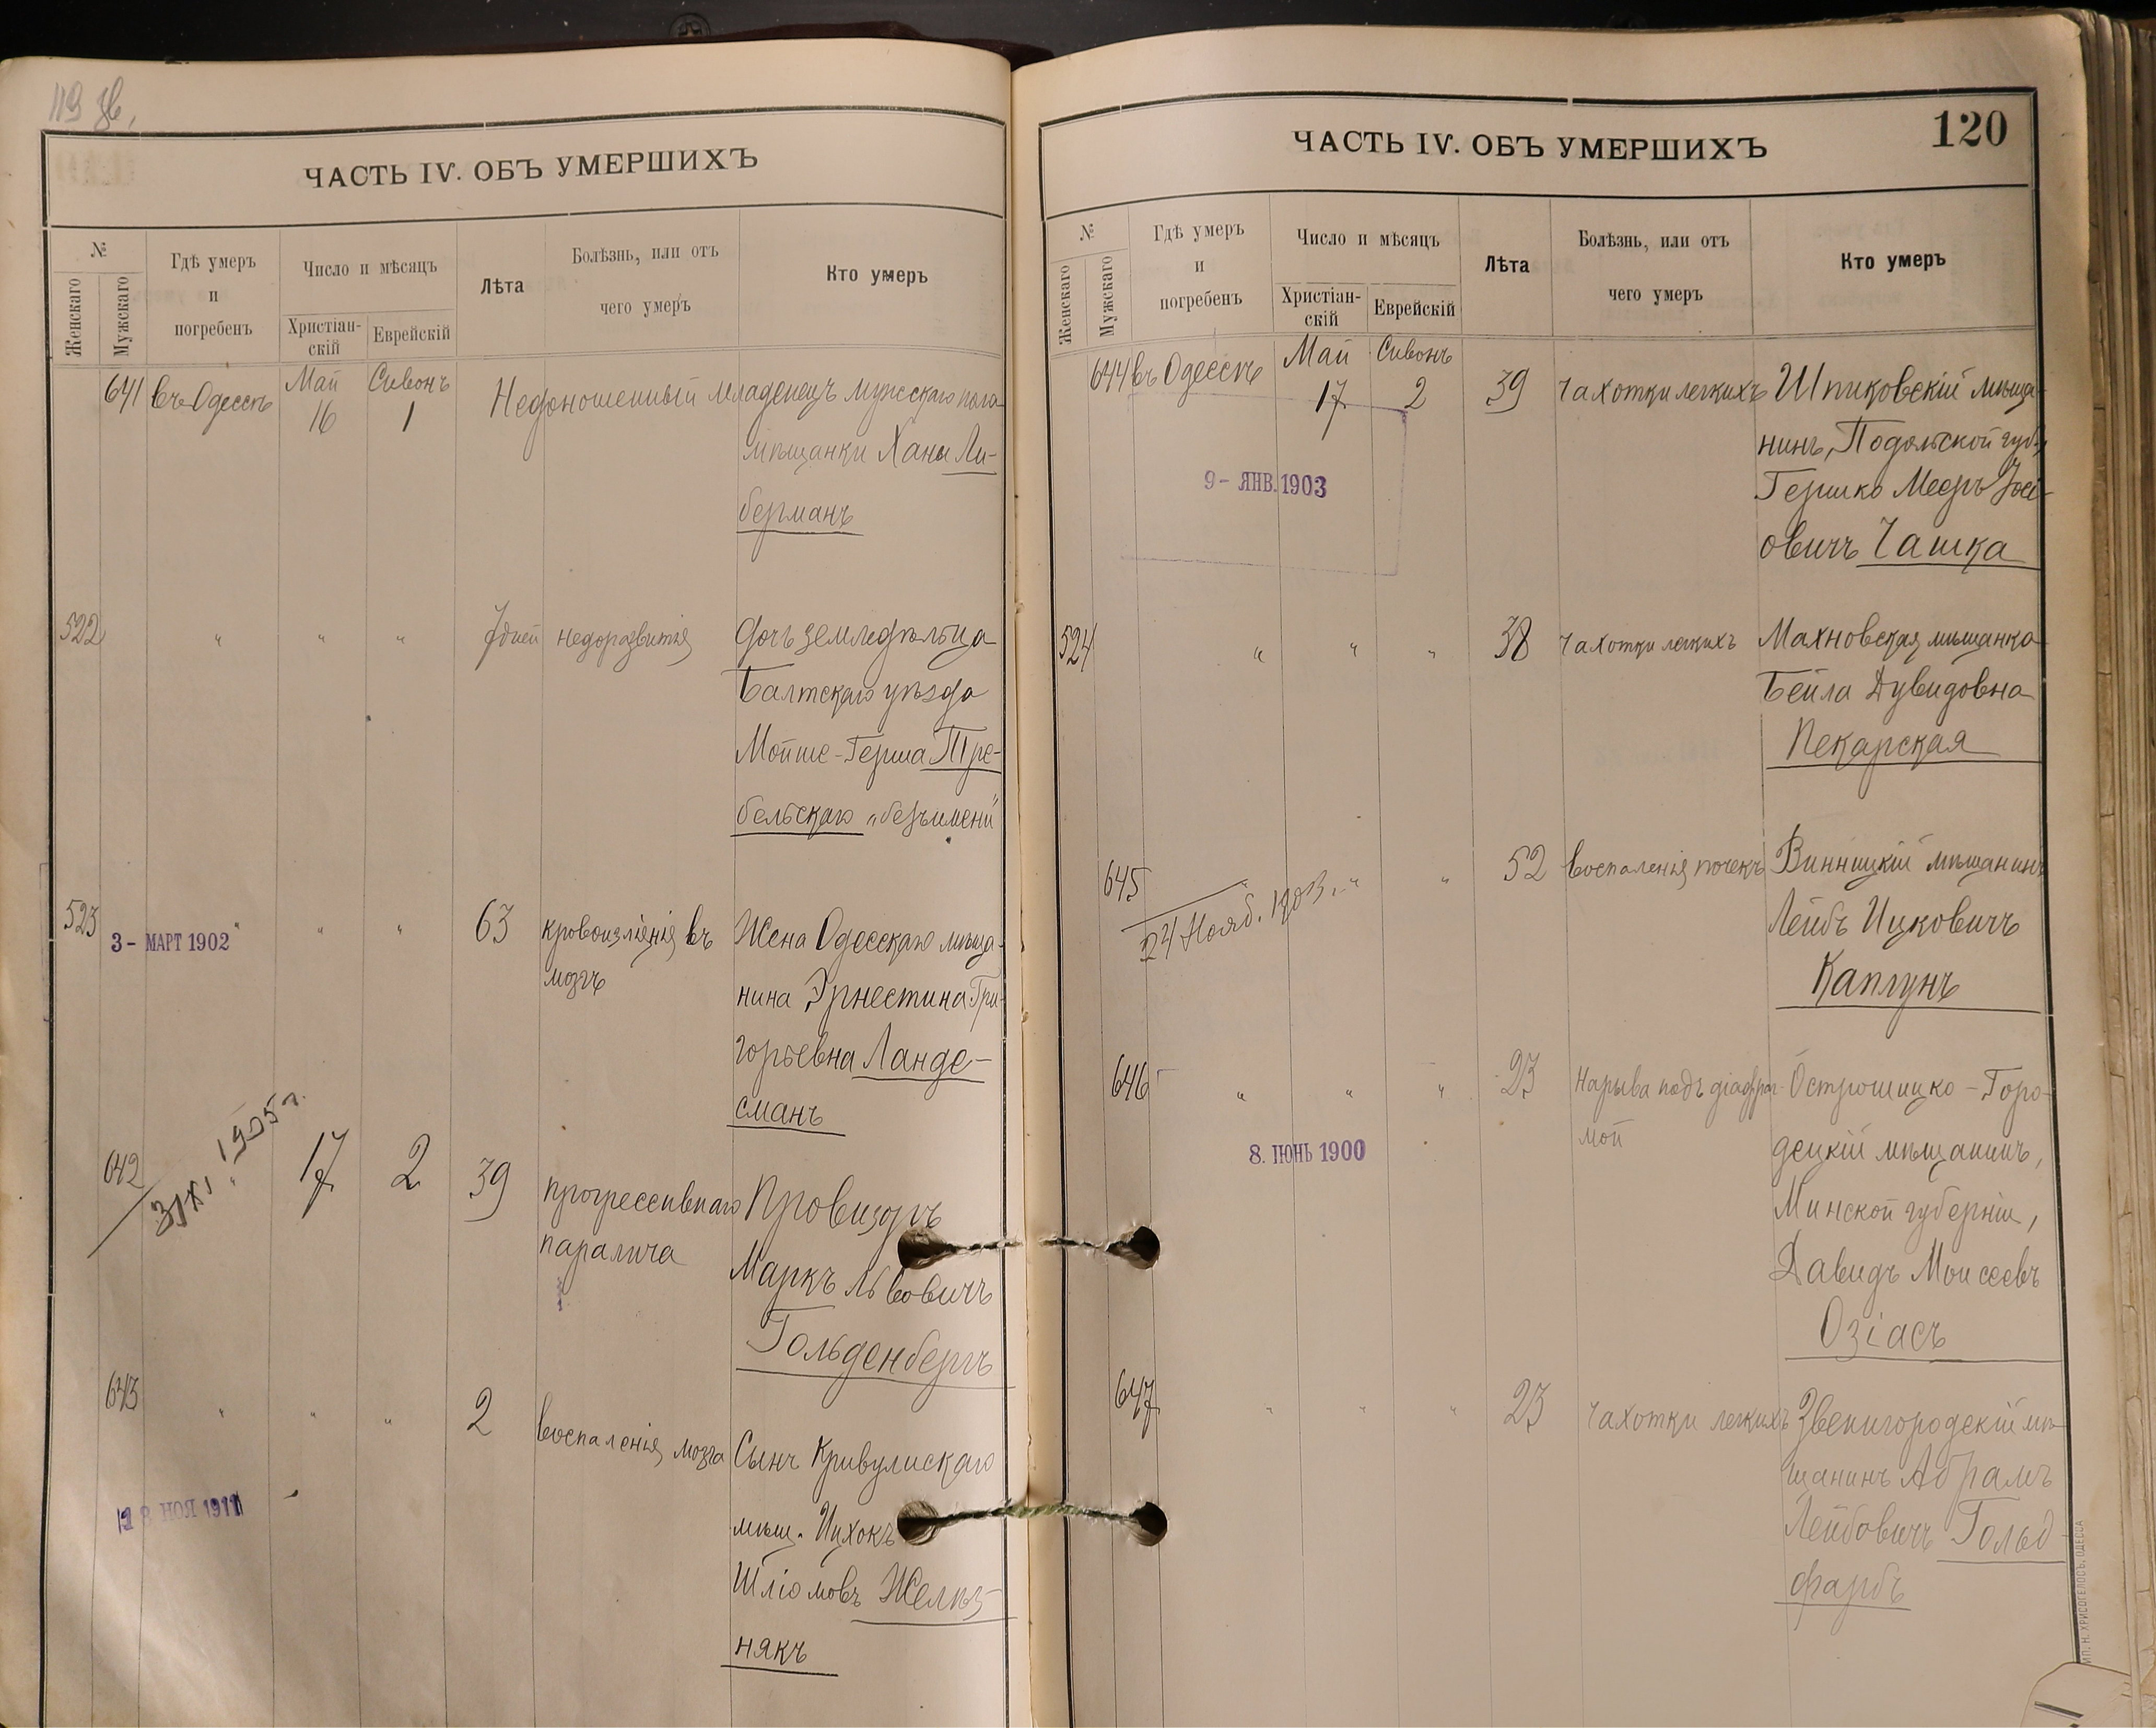 119 об.
ЧАСТЬ IV. ОБЪ УМЕРШИХЪ
№
Женскаго
Мужскаго
Гдѣ умеръ
и
погребенъ
Число и мѣсяцъ
Христіан-
скій
Еврейскій
Лѣта
Болѣзнь, или отъ
чего умеръ
Кто умеръ
641 въ Одессѣ Май Сивонъ
16 1
Недоношенный младенецъ мужскаго пола
мѣщанки Ханы Ли-
берманъ
522 " " " 7 дней недоразвитія Дочь земледѣльца
Балтскаго уѣзда
Мойше-Герша Тре-
бельскаго "безъ имени"
523 " " " 63 кровоизліянія въ
мозгъ
Жена Одесскаго мѣща-
нина Эрнестина Гри-
горьевна Ланде-
сманъ
3- МАРТ 1902
642 " 17 2 39 прогрессивнаго
паралича
Провизоръ
Маркъ Львовичъ
Гольденбергъ
1905 г.
643 " " " 2 воспаленія мозга Сынъ Кривулискаго
мѣщ. Ицхокъ
Шліомовъ Желѣз-
някъ
18 НОЯ 1911
ЧАСТЬ IV. ОБЪ УМЕРШИХЪ
120
№
Женскаго
Мужскаго
Гдѣ умеръ
и
погребенъ
Число и мѣсяцъ
Христіан-
скій
Еврейскій
Лѣта
Болѣзнь, или отъ
чего умеръ
Кто умеръ
644 въ Одессѣ Май Сивонъ
17 2 39 чахотки легкихъ Шпиковскій мѣща-
нинъ, Подольской губ.,
Гершко Мееръ Іосі-
овичъ Чашка
9- ЯНВ. 1903
524 " " " 38 чахотки легкихъ Махновская мѣщанка
Бейла Дувидовна
Пекарская
645 " " " 52 воспаленія почекъ Винницкій мѣщанинъ
Лейбъ Ицковичъ
Каплунъ
24 Нояб. 1903
646 " " " 23 Нарыва подъ діафраг-
мой
Острошицко-Горо-
децкій мѣщанинъ,
Минской губерніи,
Давидъ Моисеевъ
Озіасъ
8. ІЮНЬ 1900
647 " " " 23 чахотки легкихъ Звенигородскій мѣ-
щанинъ Абрамъ
Лейбовичъ Гольд-
фарбъ
Н. ХРИСОГЕЛОСЪ, ОДЕССА